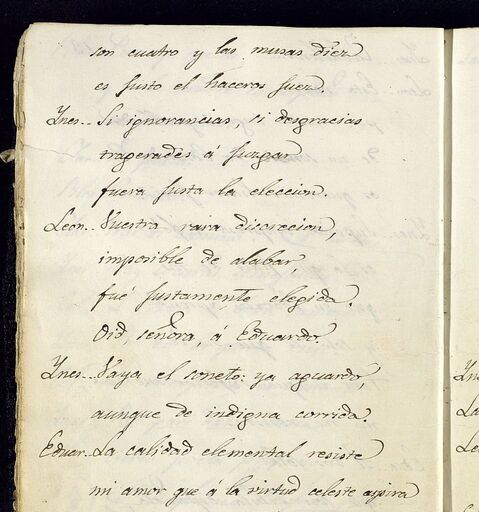 son cuatro y las musas diez
es justo el haceros juez.
Ynes.. Si ignorancias, si desgracias
trageradês á juzgar
fuera justa la eleccion.
Leon.. Vuestra rara discrecion,
imposible de alabar,
fué justamente elegida.
Oid, señora, á Eduardo.
Ynes.. Vaya el soneto: ya aguardo,
aunque de indigna corrida.
Eduar.. La calidad elemental resiste
mi amor que á la virtud celeste aspira
Yne
La
Le